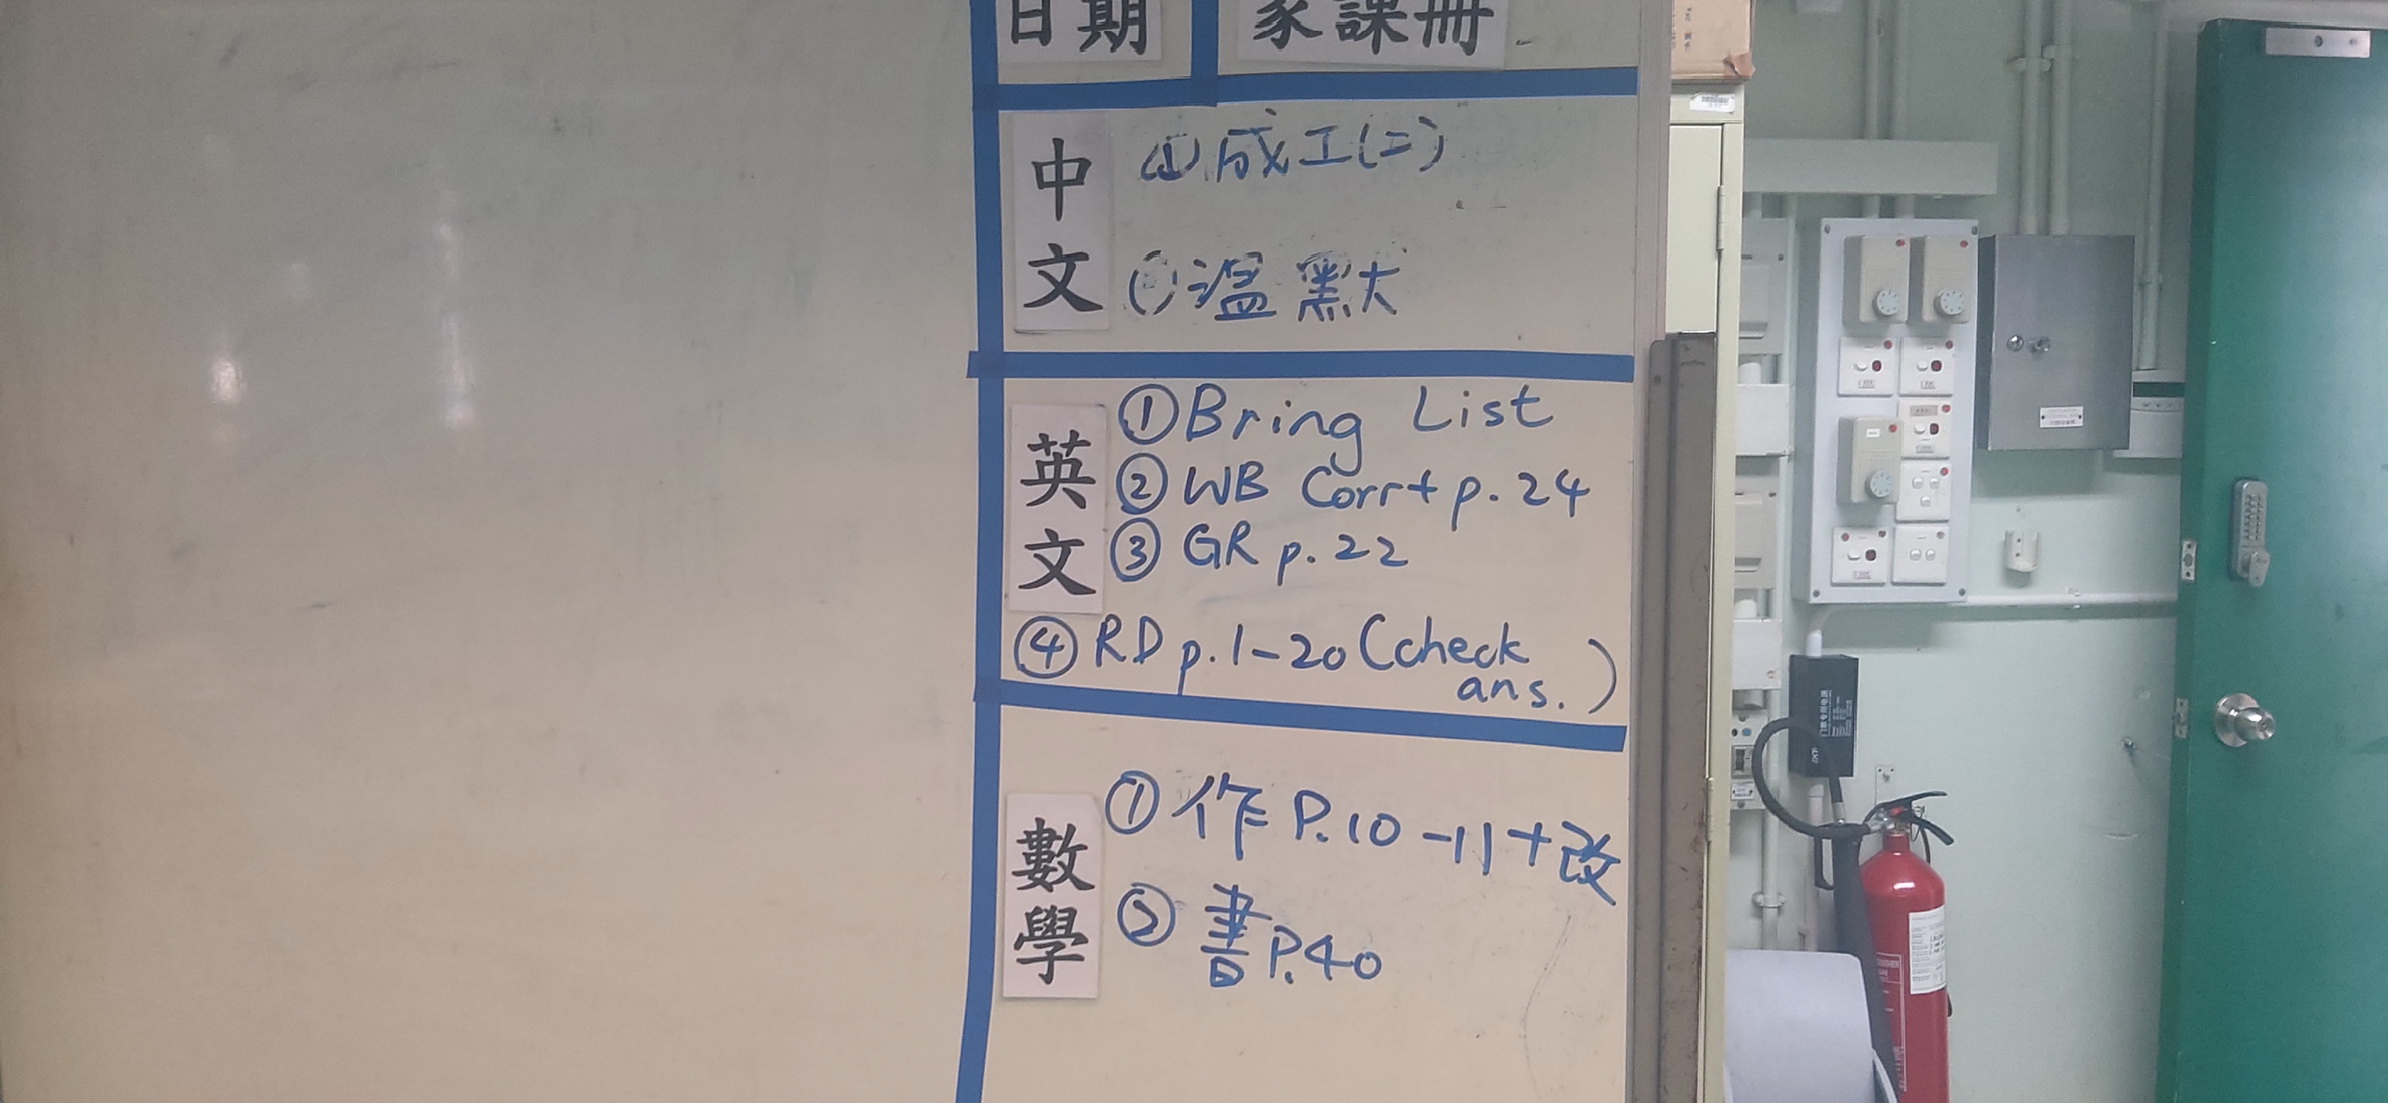 日期 家課冊
中文
① 成工(二)
② 溫默
英文
① Bring List
② WB Corr+ p.24
③ GR p.22
④ RD p.1-20 (check
ans.)
數學
① 作 P.10-11+改
② 書 P.40